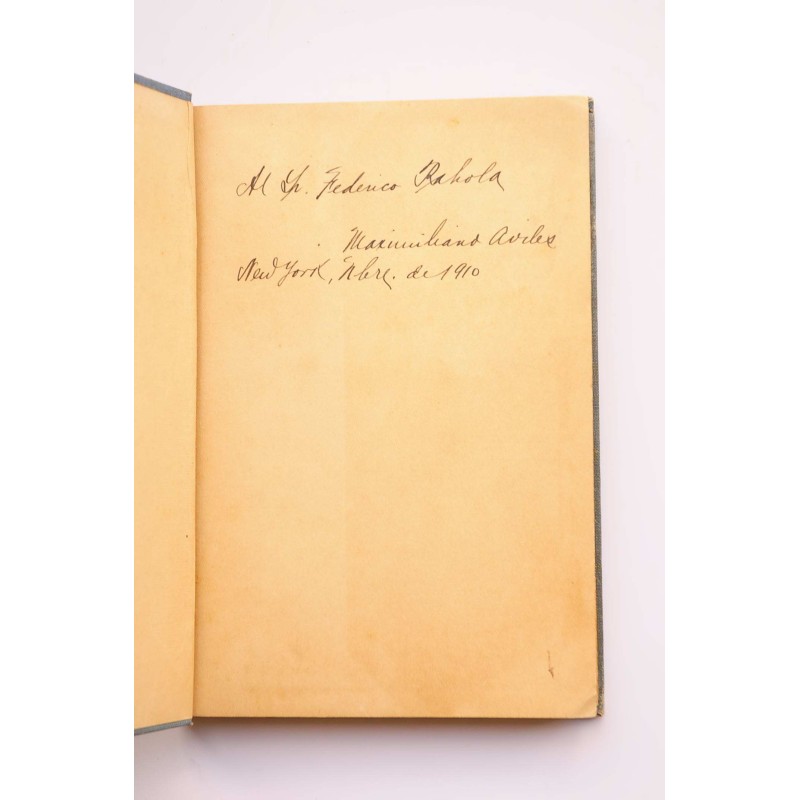 Al Sr. Federico Rahola
Maximiliano Aviles
New York, Nbre. de 1910